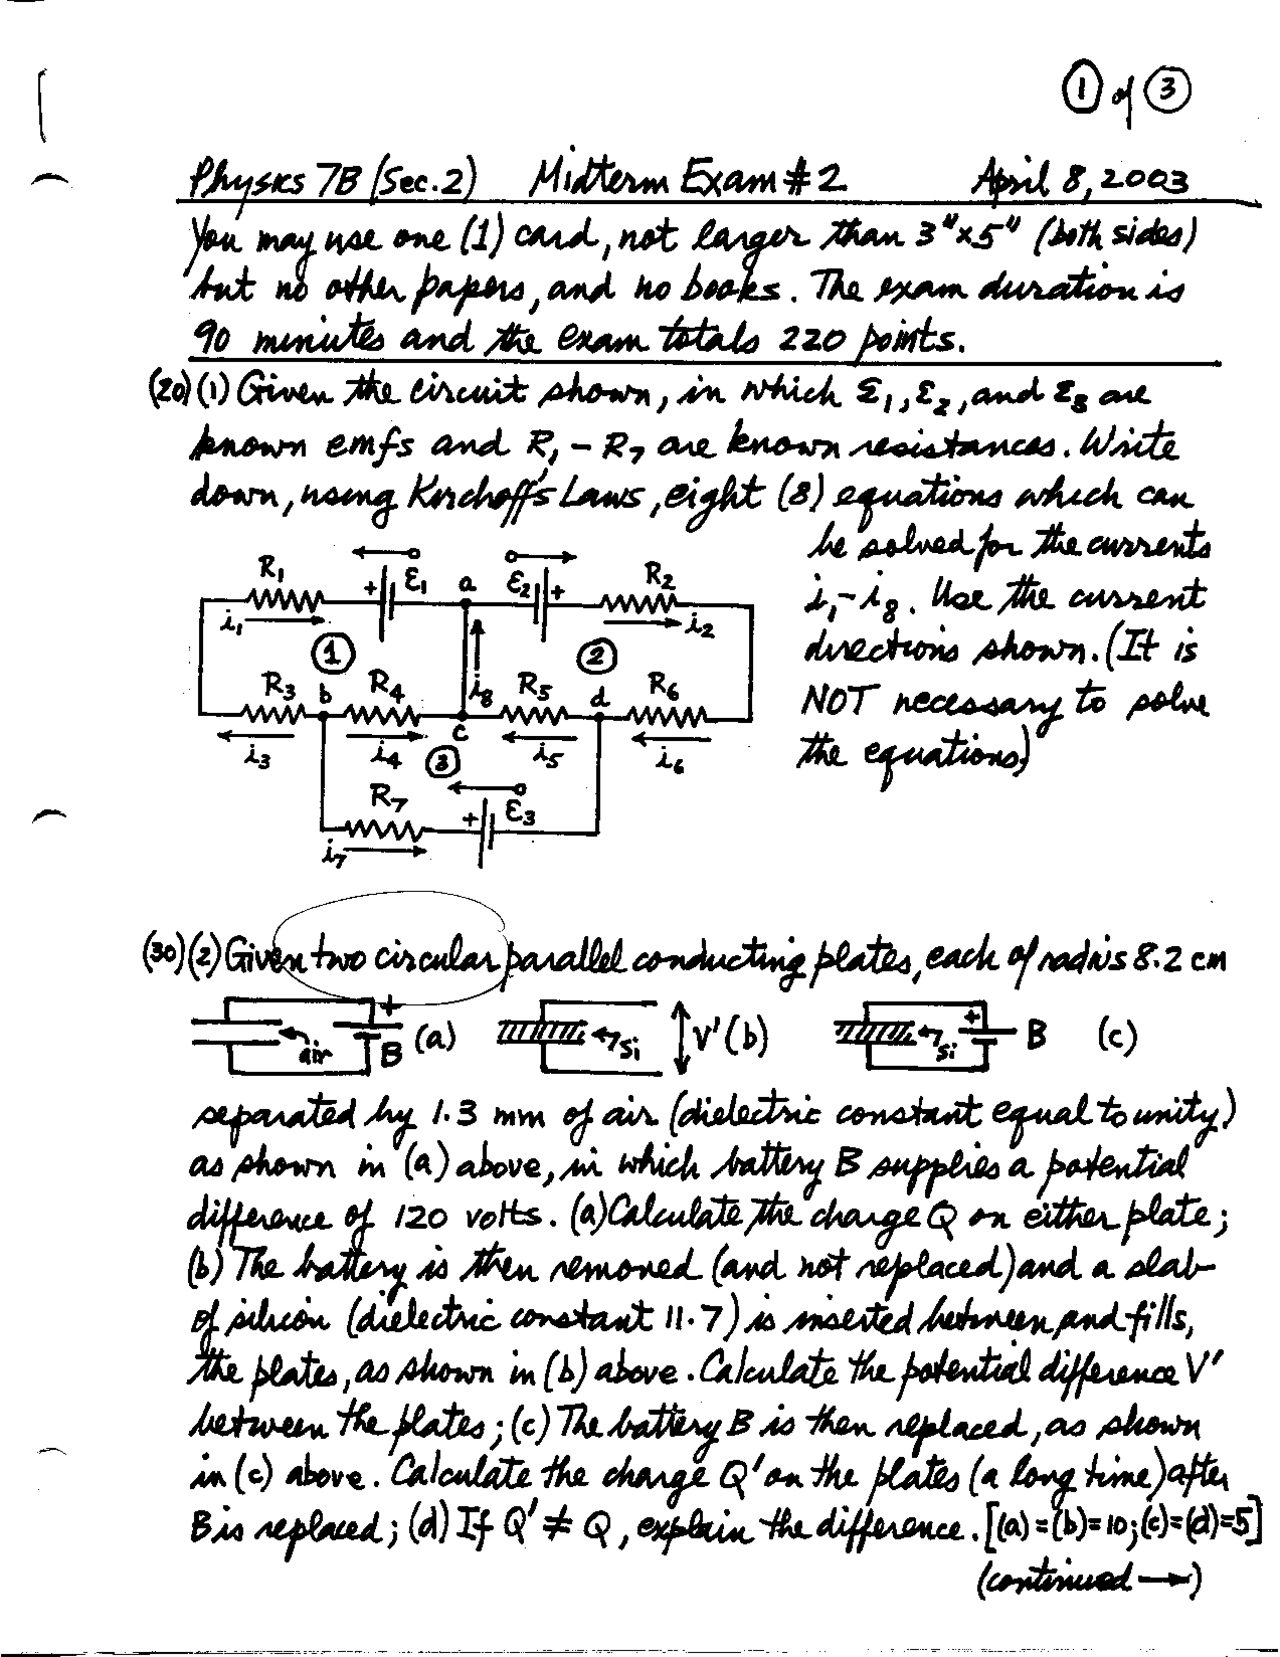 ① of ③
Physics 7B (Sec. 2) Midterm Exam #2 April 8, 2003
You may use one (1) card, not larger than 3"x5" (both sides)
but no other papers, and no books. The exam duration is
90 minutes and the exam totals 220 points.
(20) (1) Given the circuit shown, in which ε₁, ε₂, and ε₃ are
known emfs and R₁ – R₇ are known resistances. Write
down, using Kirchoff's Laws, eight (8) equations which can
be solved for the currents
i₁–i₈. Use the current
directions shown. (It is
NOT necessary to solve
the equations)
R₁ + ε₁ a ε₂ + R₂
i₁ i₂
① ②
R₃ b R₄ i₈ R₅ d R₆
c
i₃ i₄ ③ i₅ i₆
R₇ + ε₃
i₇
(30) (2) Given two circular parallel conducting plates, each of radius 8.2 cm
air + B (a) Si V' (b) Si + B (c)
separated by 1.3 mm of air (dielectric constant equal to unity)
as shown in (a) above, in which battery B supplies a potential
difference of 120 volts. (a) Calculate the charge Q on either plate;
(b) The battery is then removed (and not replaced) and a slab
of silicon (dielectric constant 11.7) is inserted between and fills,
the plates, as shown in (b) above. Calculate the potential difference V'
between the plates; (c) The battery B is then replaced, as shown
in (c) above. Calculate the charge Q' on the plates (a long time) after
B is replaced; (d) If Q' ≠ Q, explain the difference. [(a)=(b)=10; (c)=(d)=5]
(continued →)